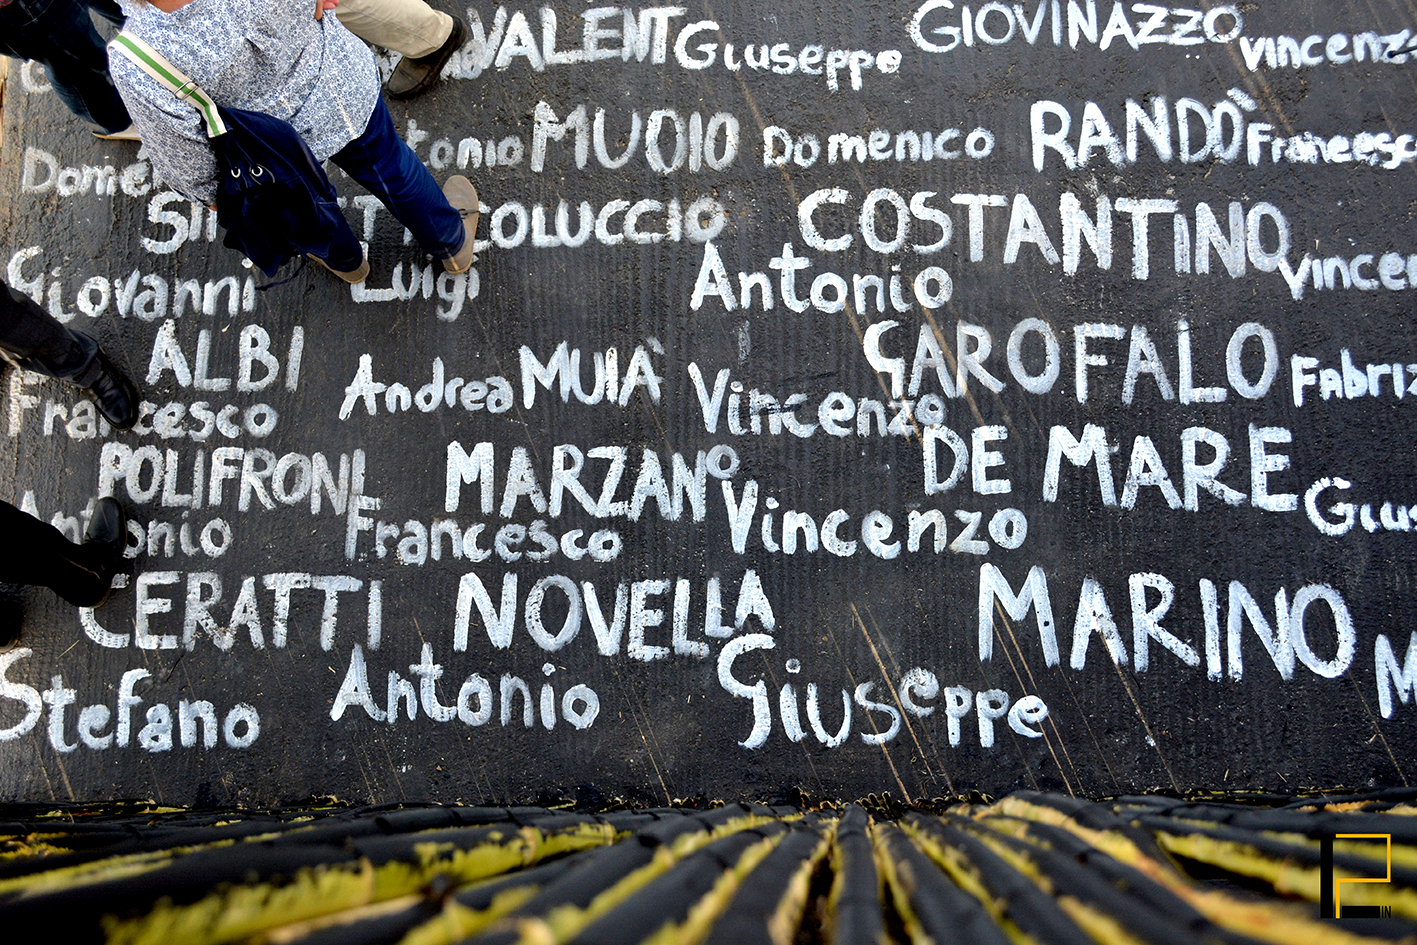 VALENT Giuseppe GIOVINAZZO vincenzo
tonio MUOIO Domenico RANDÒ Francesco
COLUCCIO COSTANTINO vincen
Giovanni Luigi Antonio
ALBI Andrea MUIÀ Vincenzo GAROFALO Fabriz
Francesco
POLIFRONI MARZANO DE MARE Gius
Antonio Francesco Vincenzo
CERATTI NOVELLA MARINO
Stefano Antonio Giuseppe
IN